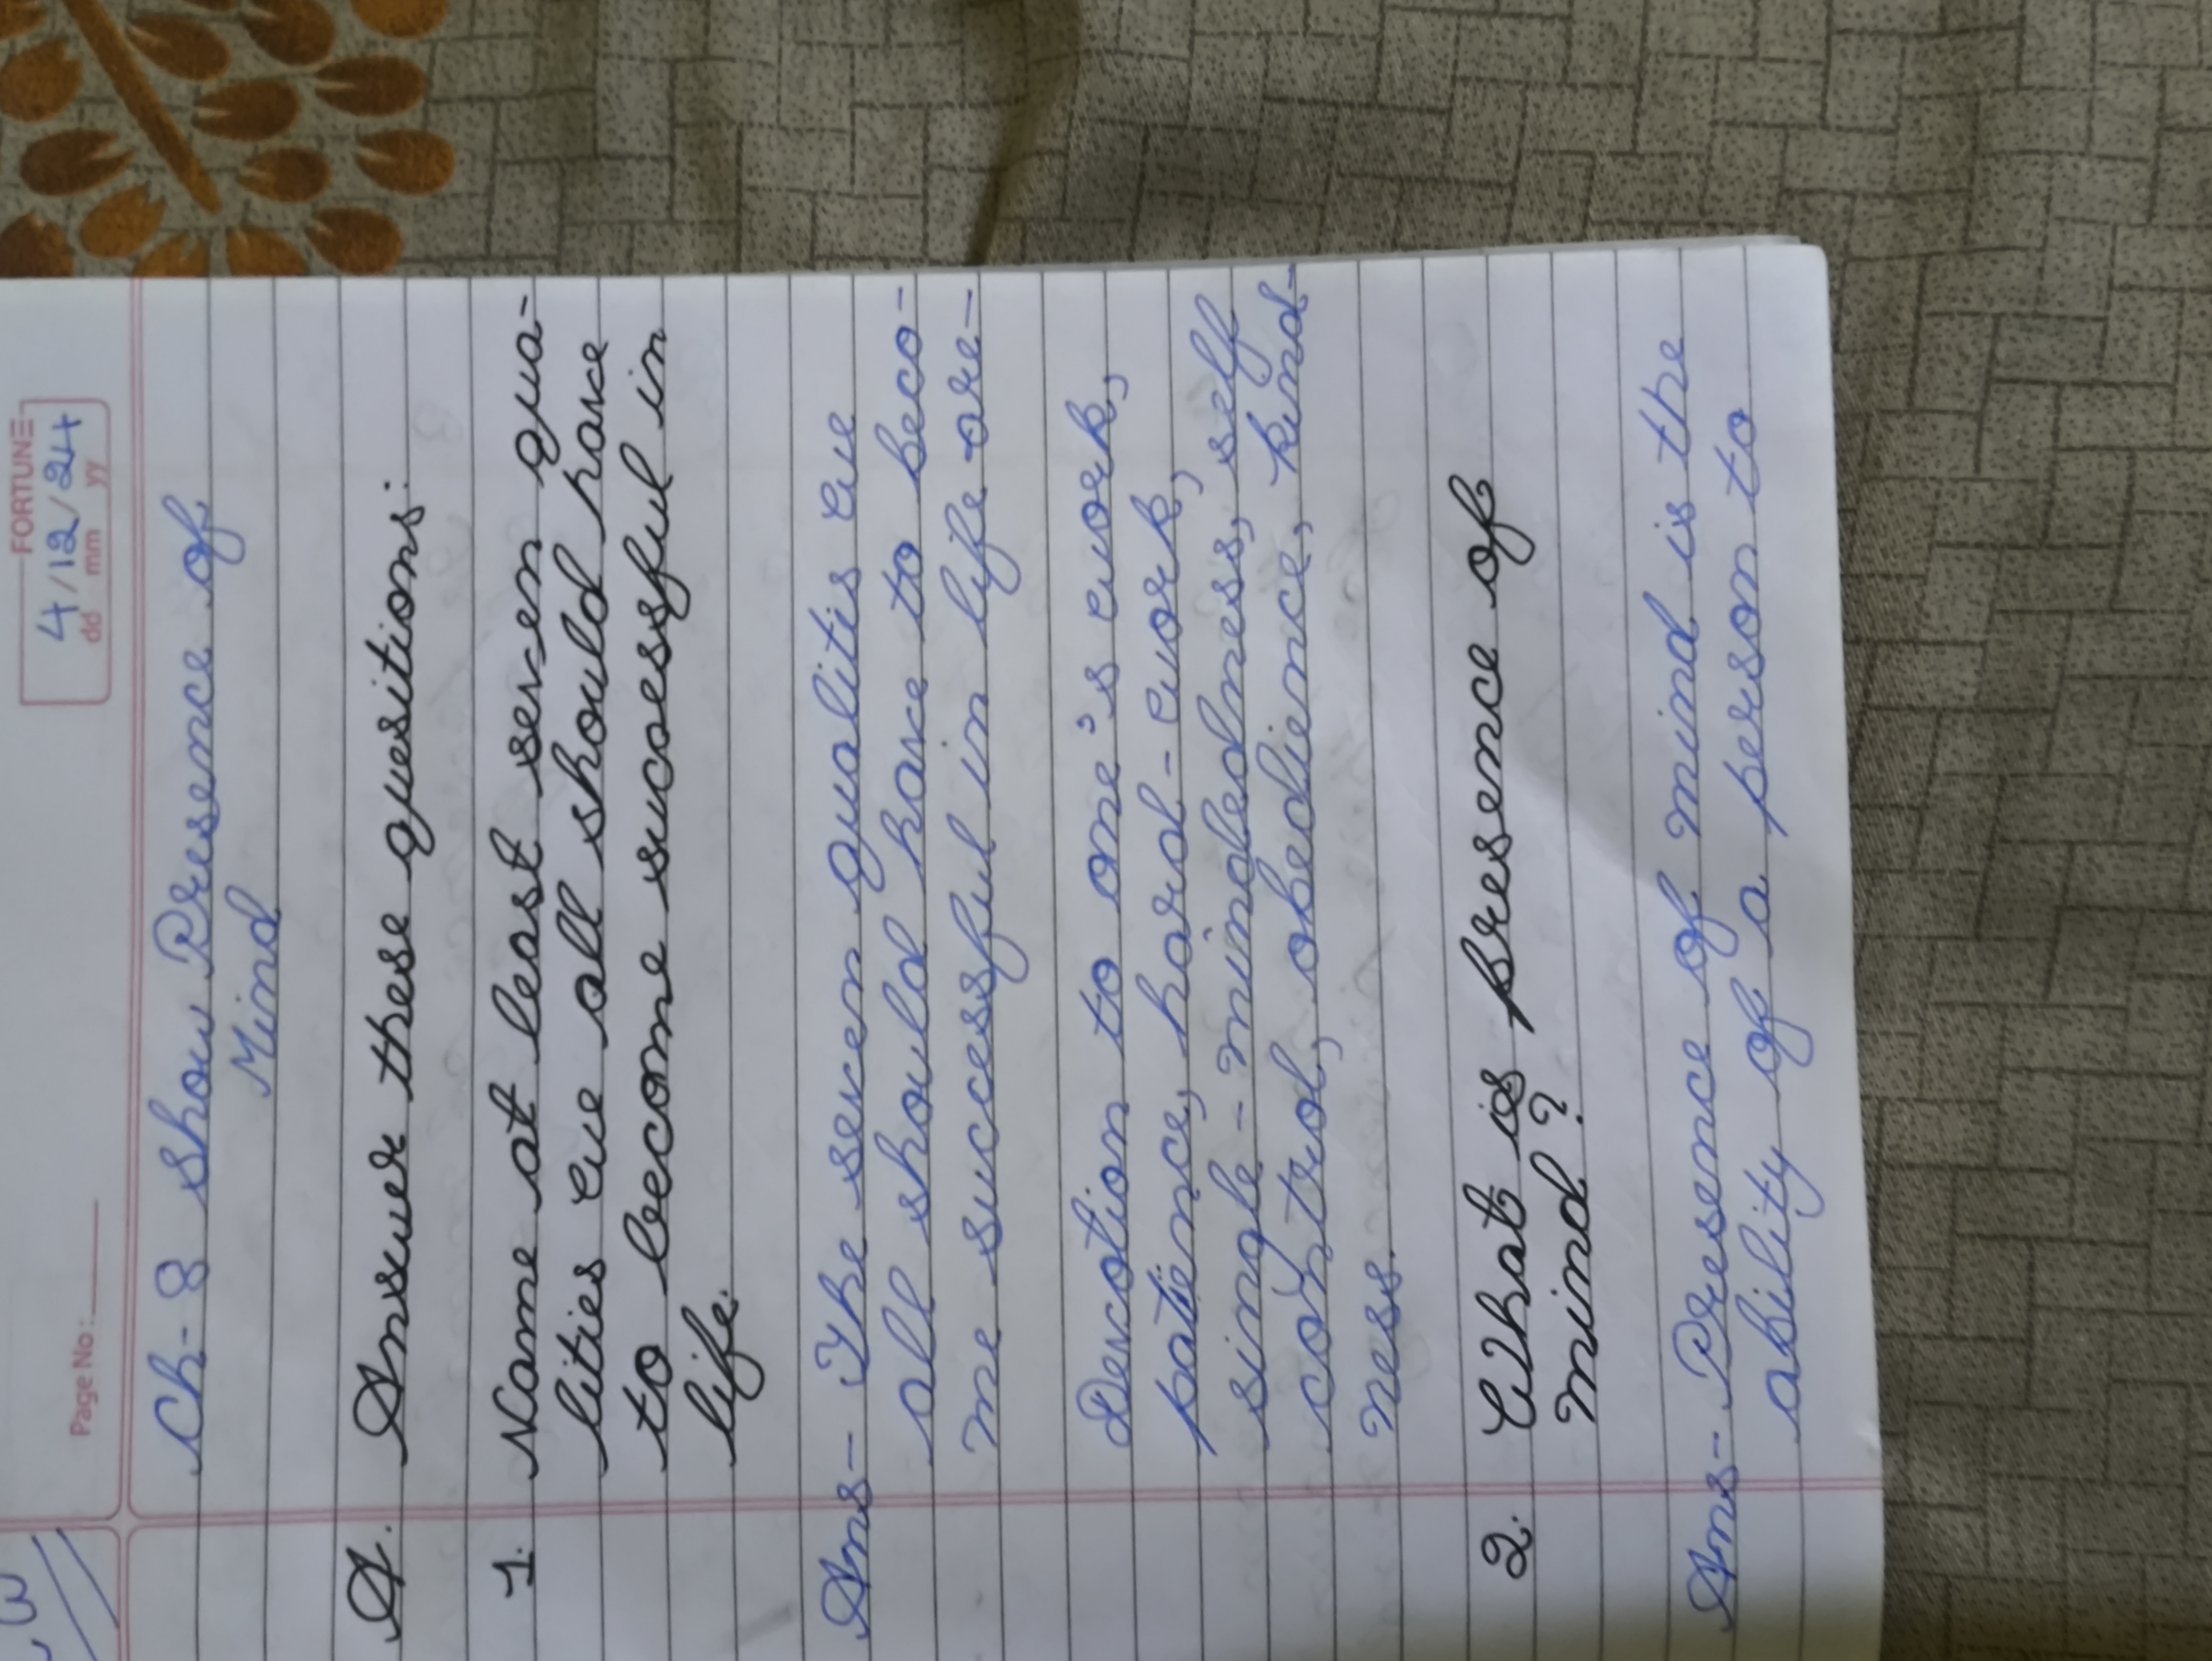 FORTUNE
Page No:
4/12/24
dd mm yy
Ch-8 Show Presence of
Mind
A. Answer these quesitions:
1. Name at least seven qua-
lities we all should have
to become successful in
life.
Ans- The seven qualities we
all should have to beco-
me successful in life are-
Devotion to one's work,
patience, hard-work,
single-mindedness, self
control, obedience, kind-
ness.
2. What is presence of
mind?
Ans- Presence of mind is the
ability of a person to